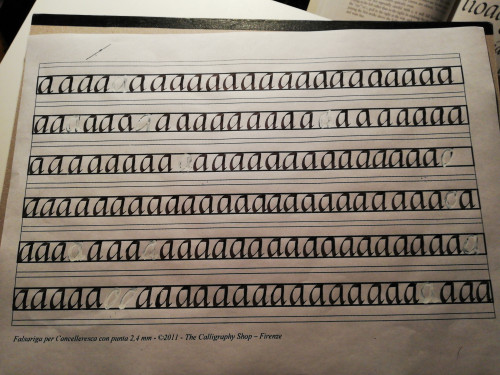 aaaa aaaaaaaaaaaaaaaaa
aa aaa aaaaaaaaa aaaaaaa
aaaaaaaa aaaaaaaaaaaaa
aaaaaaaaaaaaaaaaaaaaaaaa a
aaa aaa aaaaaaaaaaaaaaaaa
aaaaa aaaaaaaaaaaaaaa aaa
Falsariga per Cancelleresca con punta 2,4 mm - ©2011 - The Calligraphy Shop – Firenze